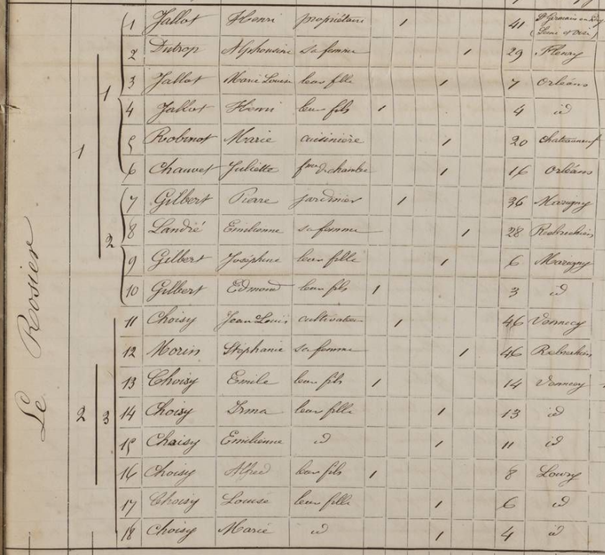 Le Rosier
1 1 1 Jallot Henri propriétaire 1 41 St Germain en
2 Dubrop Alphonsine sa femme 1 29 Fleury
3 Jallot Marie Louise leur fille 1 7 Orléans
4 Jallot Henri leur fils 1 4 id
5 Robinot Marie cuisinière 1 20 Chateauneuf
6 Chauvet Juliette fme de chambre 1 16 Orléans
2 7 Gilbert Pierre jardinier 1 36 Marigny
8 Landré Emilienne sa femme 1 28
9 Gilbert Joséphine leur fille 1 6 Marigny
10 Gilbert Edmond leur fils 1 3 id
2 3 11 Choisy Jean Louis cultivateur 1 46 Vennecy
12 Morin Stéphanie sa femme 1 46
13 Choisy Emile leur fils 1 14 Vennecy
14 Choisy Irma leur fille 1 13 id
15 Choisy Emilienne id 1 11 id
16 Choisy Alfred leur fils 1 8 Loury
17 Choisy Louise leur fille 1 6 id
18 Choisy Marie id 1 4 id